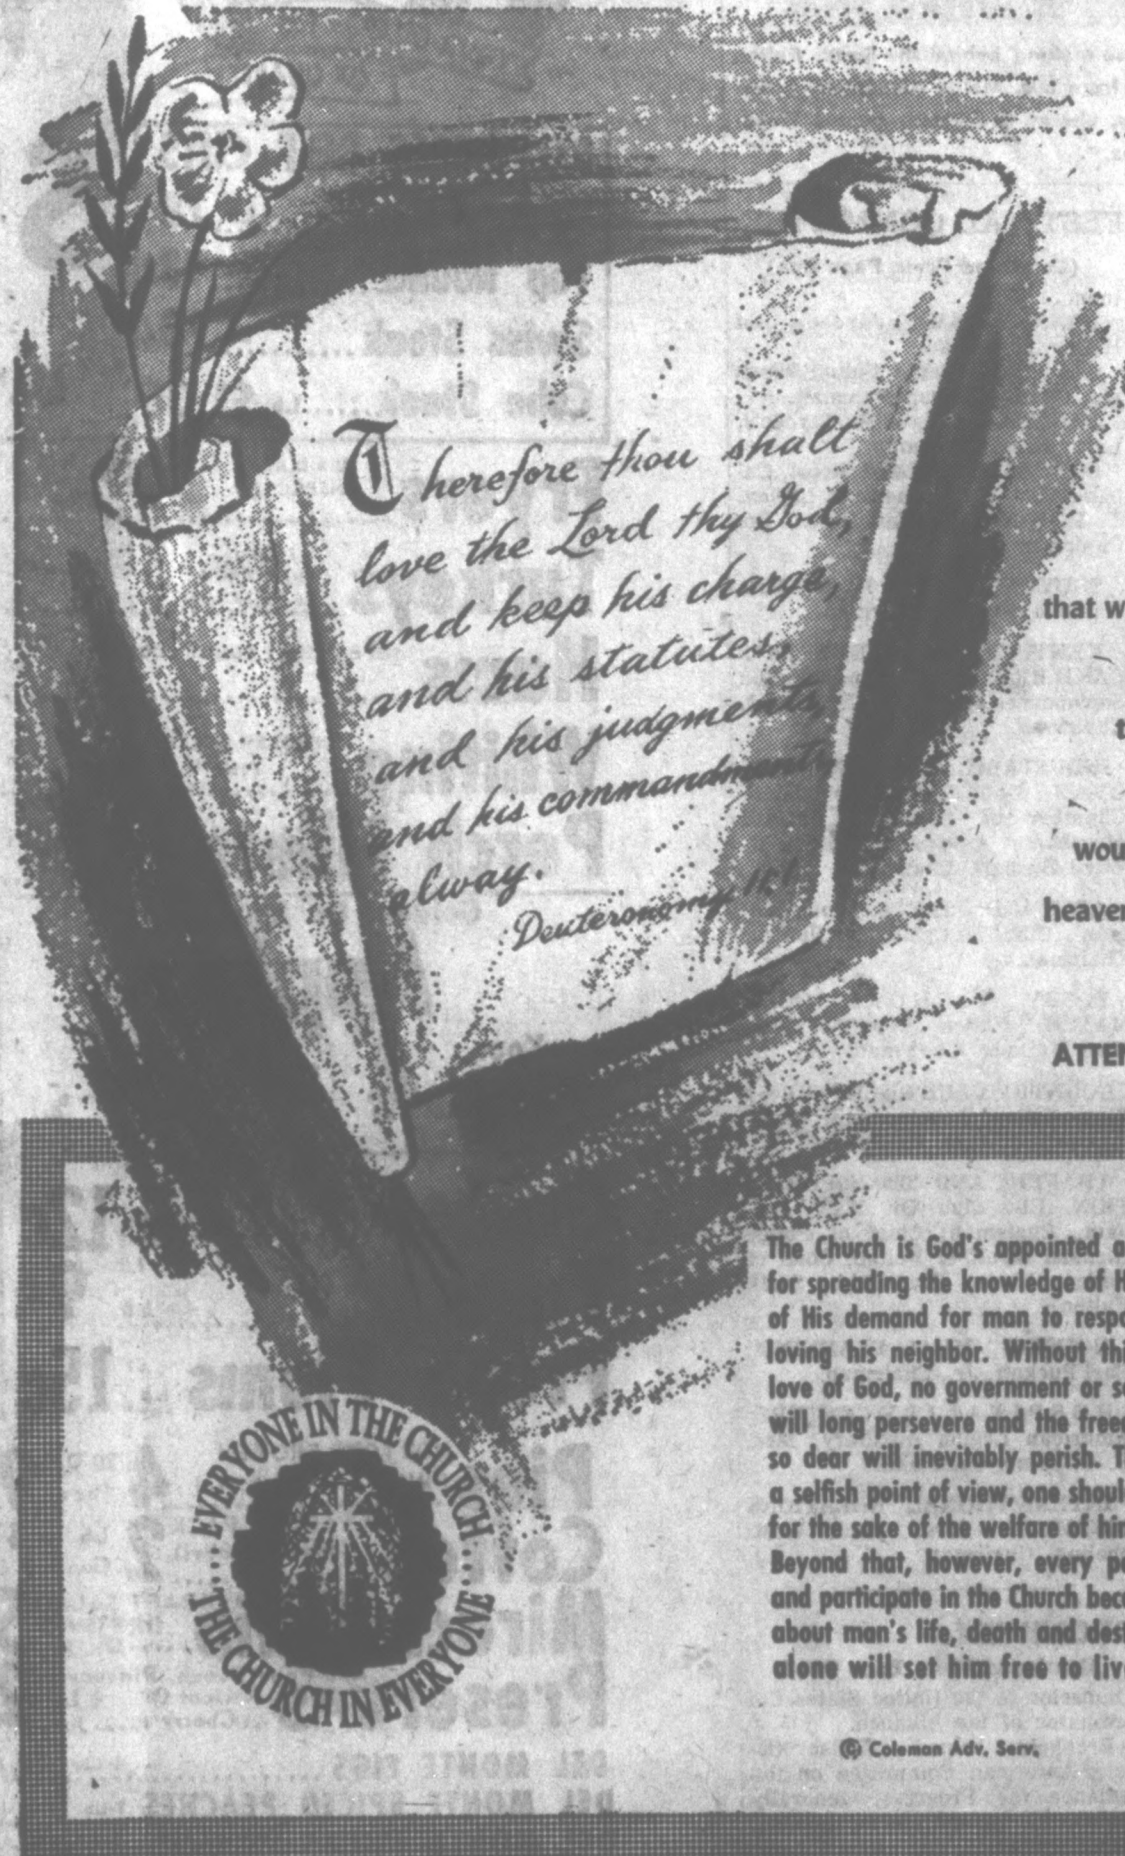 Therefore thou shalt
love the Lord thy God,
and keep his charge,
and his statutes,
and his judgments,
and his commandments,
alway.
Deuteronomy 11:1
that w
t
wou
heaven
ATTEN
The Church is God's appointed a
for spreading the knowledge of H
of His demand for man to respo
loving his neighbor. Without thi
love of God, no government or s
will long persevere and the free
so dear will inevitably perish. T
a selfish point of view, one shoul
for the sake of the welfare of hi
Beyond that, however, every pe
and participate in the Church beca
about man's life, death and dest
alone will set him free to liv
EVERYONE IN THE CHURCH
THE CHURCH IN EVERYONE
© Coleman Adv. Serv.